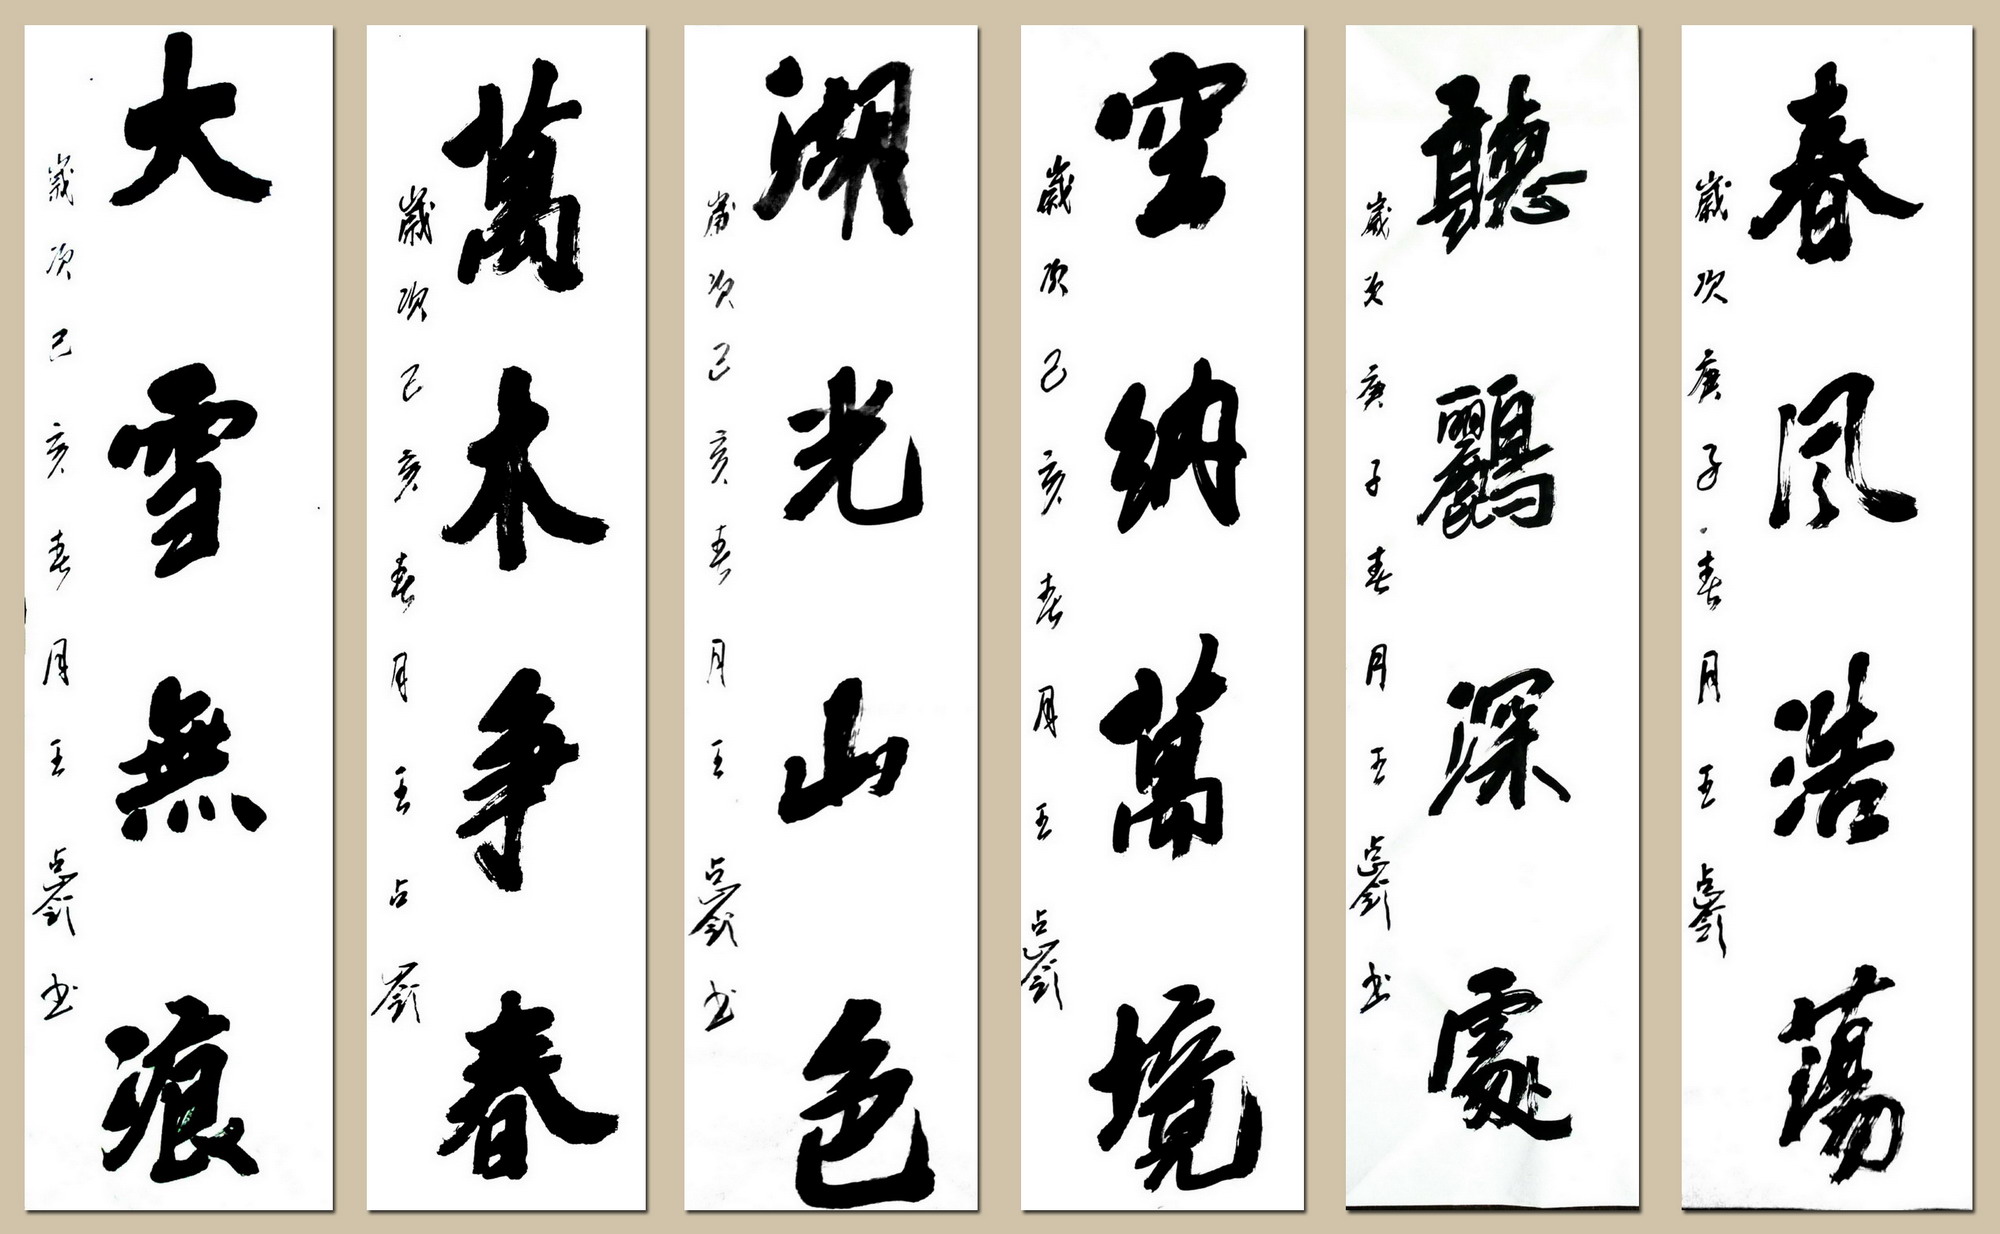 春风浩蕩
歲次庚子春月王占嶺
聽鸝深處
歲次庚子春月王占嶺书
空納萬境
歲次己亥春月王占嶺
湖光山色
歲次己亥春月王占嶺书
萬木争春
歲次己亥春月王占嶺
大雪無痕
歲次己亥春月王占嶺书